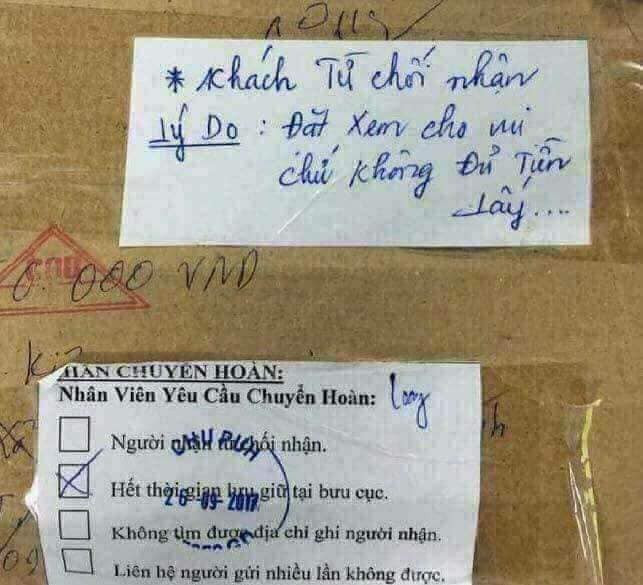 * Khách Từ chối nhận
Lý Do : Đặt xem cho vui
chứ không Đủ Tiền
Lấy....
000 VND
NHÂN CHUYỂN HOÀN:
Nhân Viên Yêu Cầu Chuyển Hoàn: long
Người nhận từ chối nhận.
Hết thời gian lưu giữ tại bưu cục.
26-09-2017
Không tìm được địa chỉ ghi người nhận.
Liên hệ người gửi nhiều lần không được.